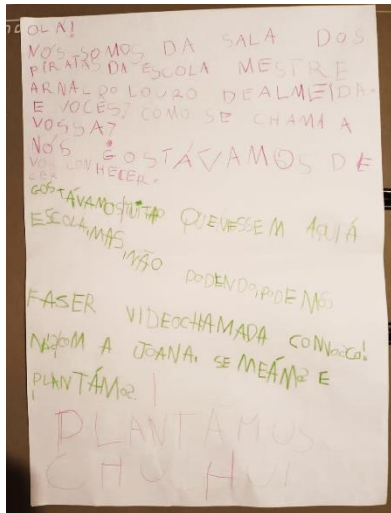 OLÁ!
NÓS SOMOS DA SALA DOS
PIRATAS DA ESCOLA MESTRE
ARNALDO LOURO DE ALMEIDA.
E VOCÊS? COMO SE CHAMA A
VOSSA?
NÓS GOSTÁVAMOS DE
VOS CONHECER.
GOSTÁVAMOS QUE VESSEM AQUI Á
ESCOLA, MAS, NÃO PODENDO, PODEMOS
FASER VIDEOCHAMADA
A JOANA, SEMEÁMOS E
PLANTÁMOS
PLANTÁMOS
CHUCHU!